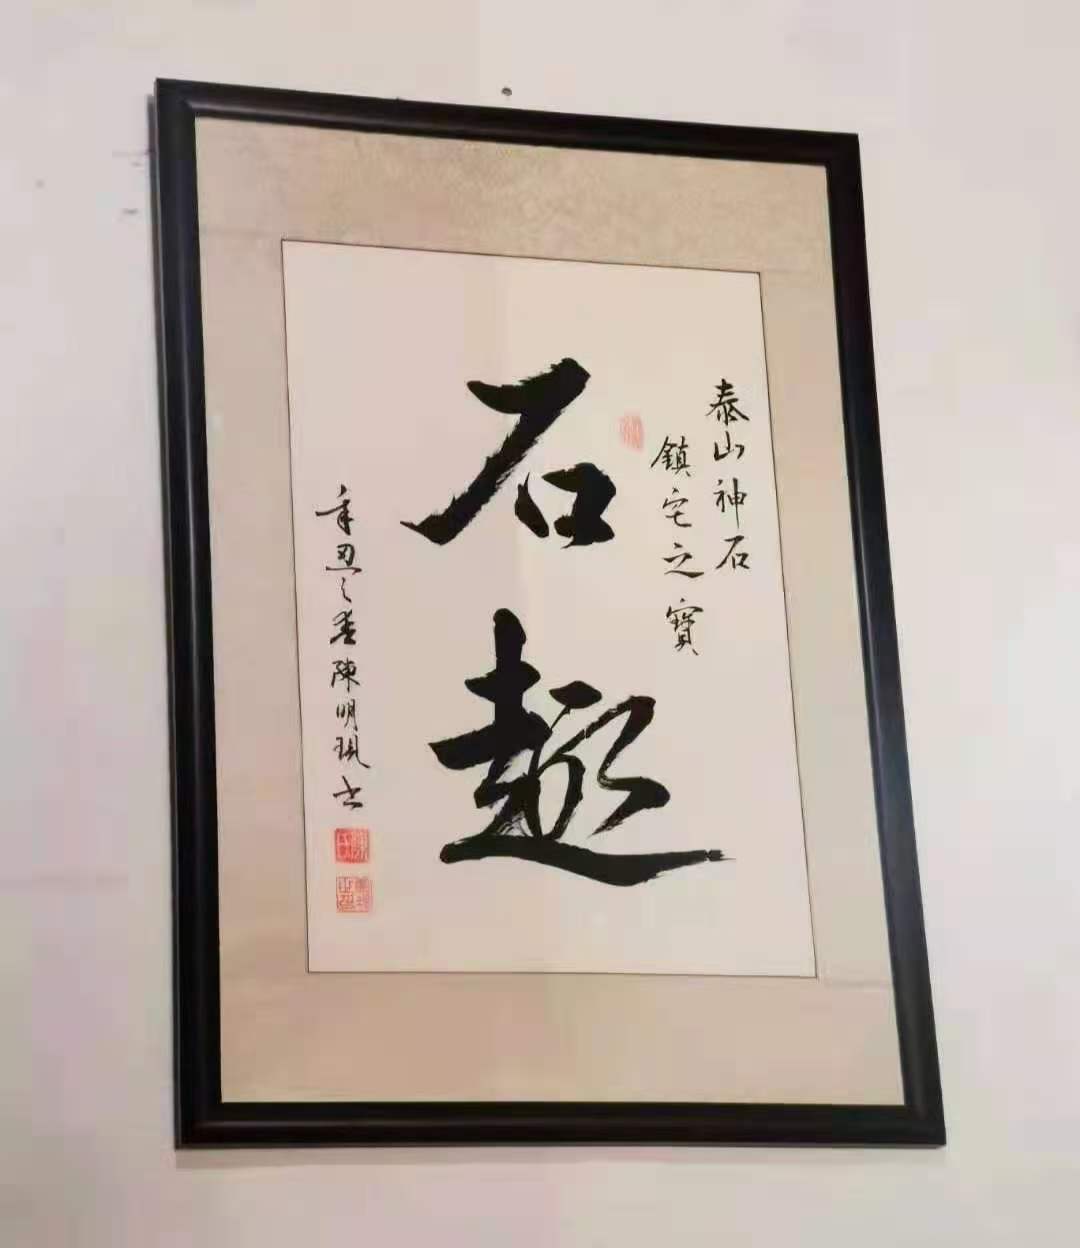 泰山神石
鎮宅之寶
石趣
辛丑之春陳明珮書